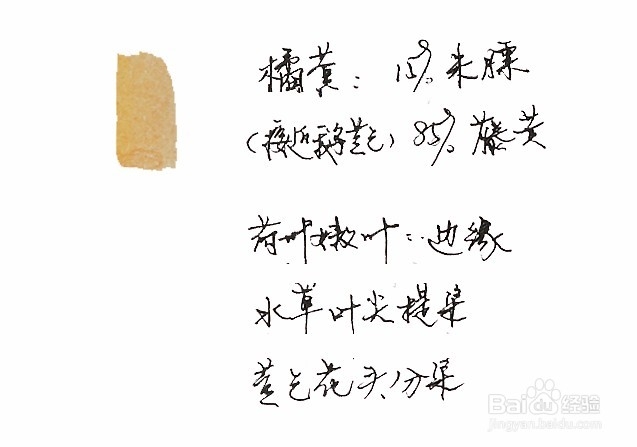 橘黄：15% 朱膘
（接近鹅黄色）85% 藤黄
荷叶嫩叶：边缘
水草叶尖提染
黄色花头分染
Baidu经验
jingyan.baidu.com